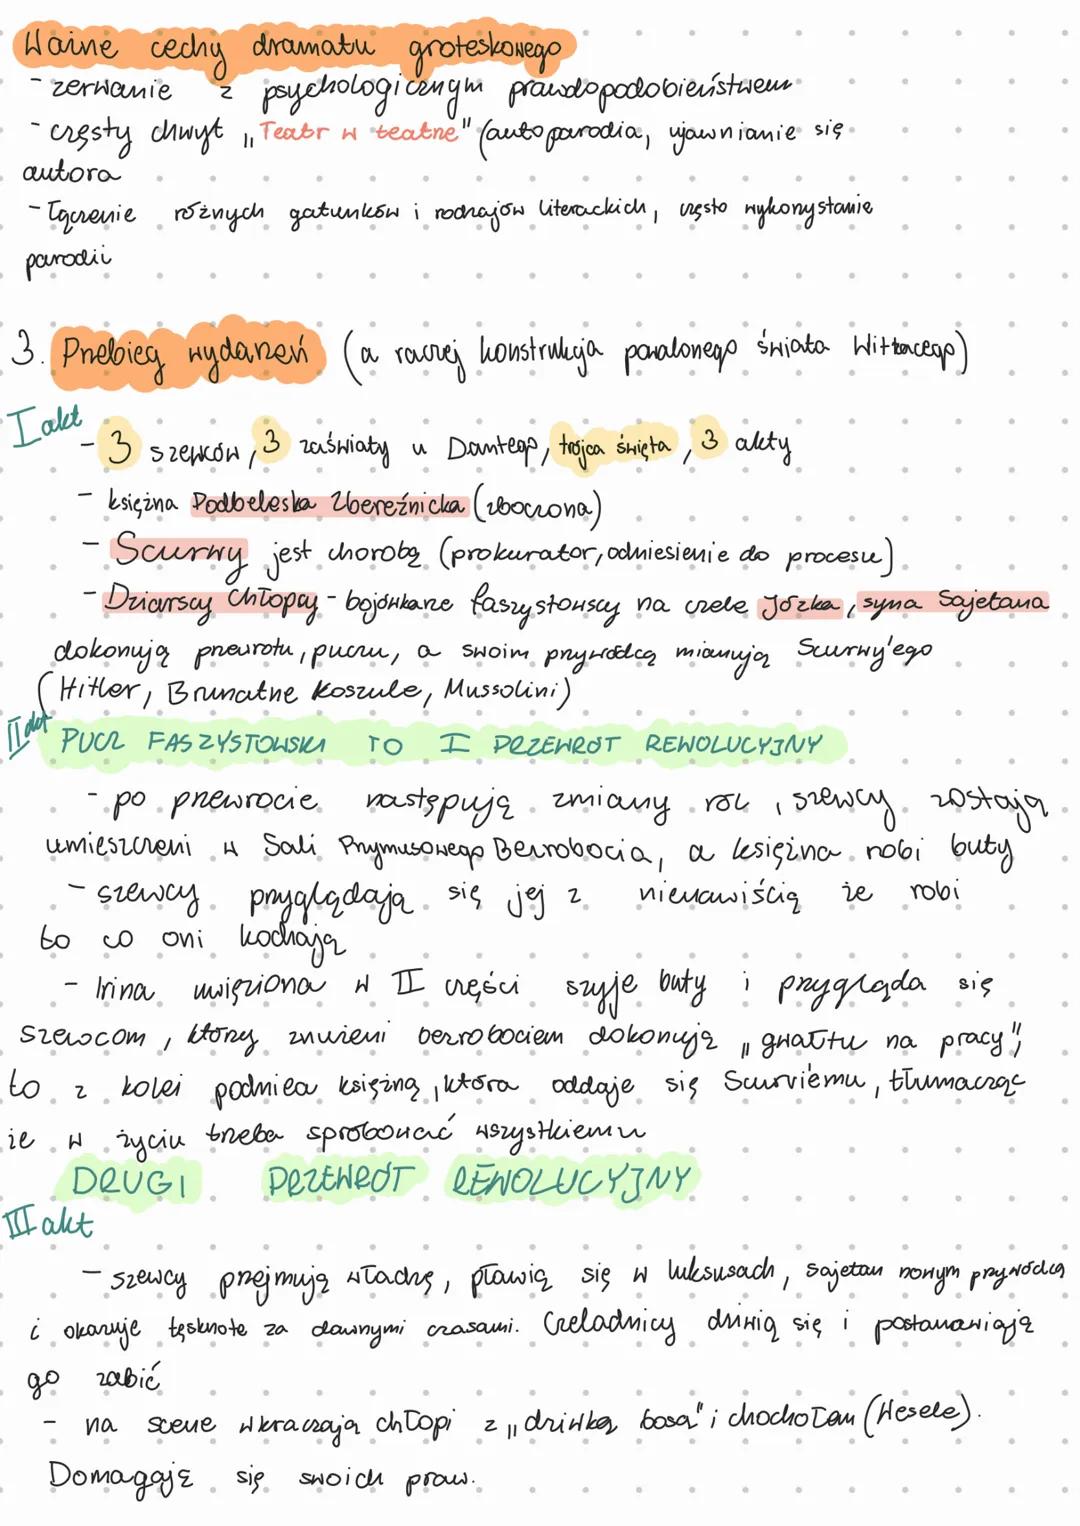 Ważne cechy dramatu groteskowego
- zerwanie z psychologicznym prawdopodobieństwem
- częsty chwyt „Teatr w teatrze" (autoparodia, ujawnianie się
autora
- łączenie różnych gatunków i rodzajów literackich, często wykorzystanie
parodii
3. Przebieg wydarzeń (a raczej konstrukcja powalonego świata Witkacego)
I akt
- 3 szewców, 3 zaświaty u Dantego, trójca święta, 3 akty
- księżna Podbeleska Zbereźnicka (zboczona)
- Scurwy jest chorobą (prokurator, odniesienie do procesu)
- Dziarscy Chłopcy - bojówkarze faszystowscy na czele Józka, syna Sajetana
dokonują przewrotu, puczu, a swoim przywódcą mianują Scurwy'ego
(Hitler, Brunatne Koszule, Mussolini)
II akt PUCZ FASZYSTOWSKI TO I PRZEWRÓT REWOLUCYJNY
- po przewrocie następują zmiany ról, szewcy zostają
umieszczeni w Sali Przymusowego Bezrobocia, a księżna robi buty
- szewcy przyglądają się jej z nienawiścią że robi
to co oni kochają
- Irina uwięziona w II części szyje buty i przygląda się
szewcom, którzy znużeni bezrobociem dokonują „gwałtu na pracy",
to z kolei podnieca księżną, która oddaje się Scurviemu, tłumacząc
że w życiu trzeba spróbować wszystkiemu
DRUGI PRZEWRÓT REWOLUCYJNY
III akt
- szewcy przejmują władzę, pławią się w luksusach, Sajetan nowym przywódcą
i okazuje tęsknote za dawnymi czasami. Czeladnicy drwią się i postanawiają
go zabić
- na scene wkraczają chłopi z „dziwką bosą" i chochołam (Wesele).
Domagają się swoich praw.